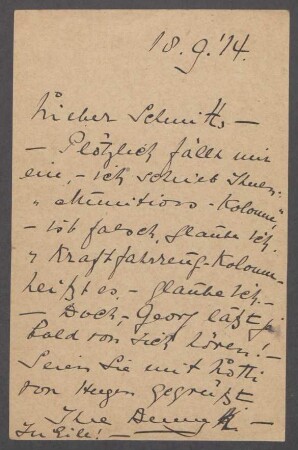 18.9.'14.
Lieber Schmitts, –
– Plötzlich fällt mir
ein, – ich schrieb Ihnen:
„Munitions-Kolonne",
– ist falsch, glaube ich.
„Kraftfahrzeug-Kolonne
heißt es, – glaube ich. –
– Doch, – Georg läßt ja
bald von sich hören! –
Seien Sie mit
von Herzen gegrüßt
Ihre
In Eile! –